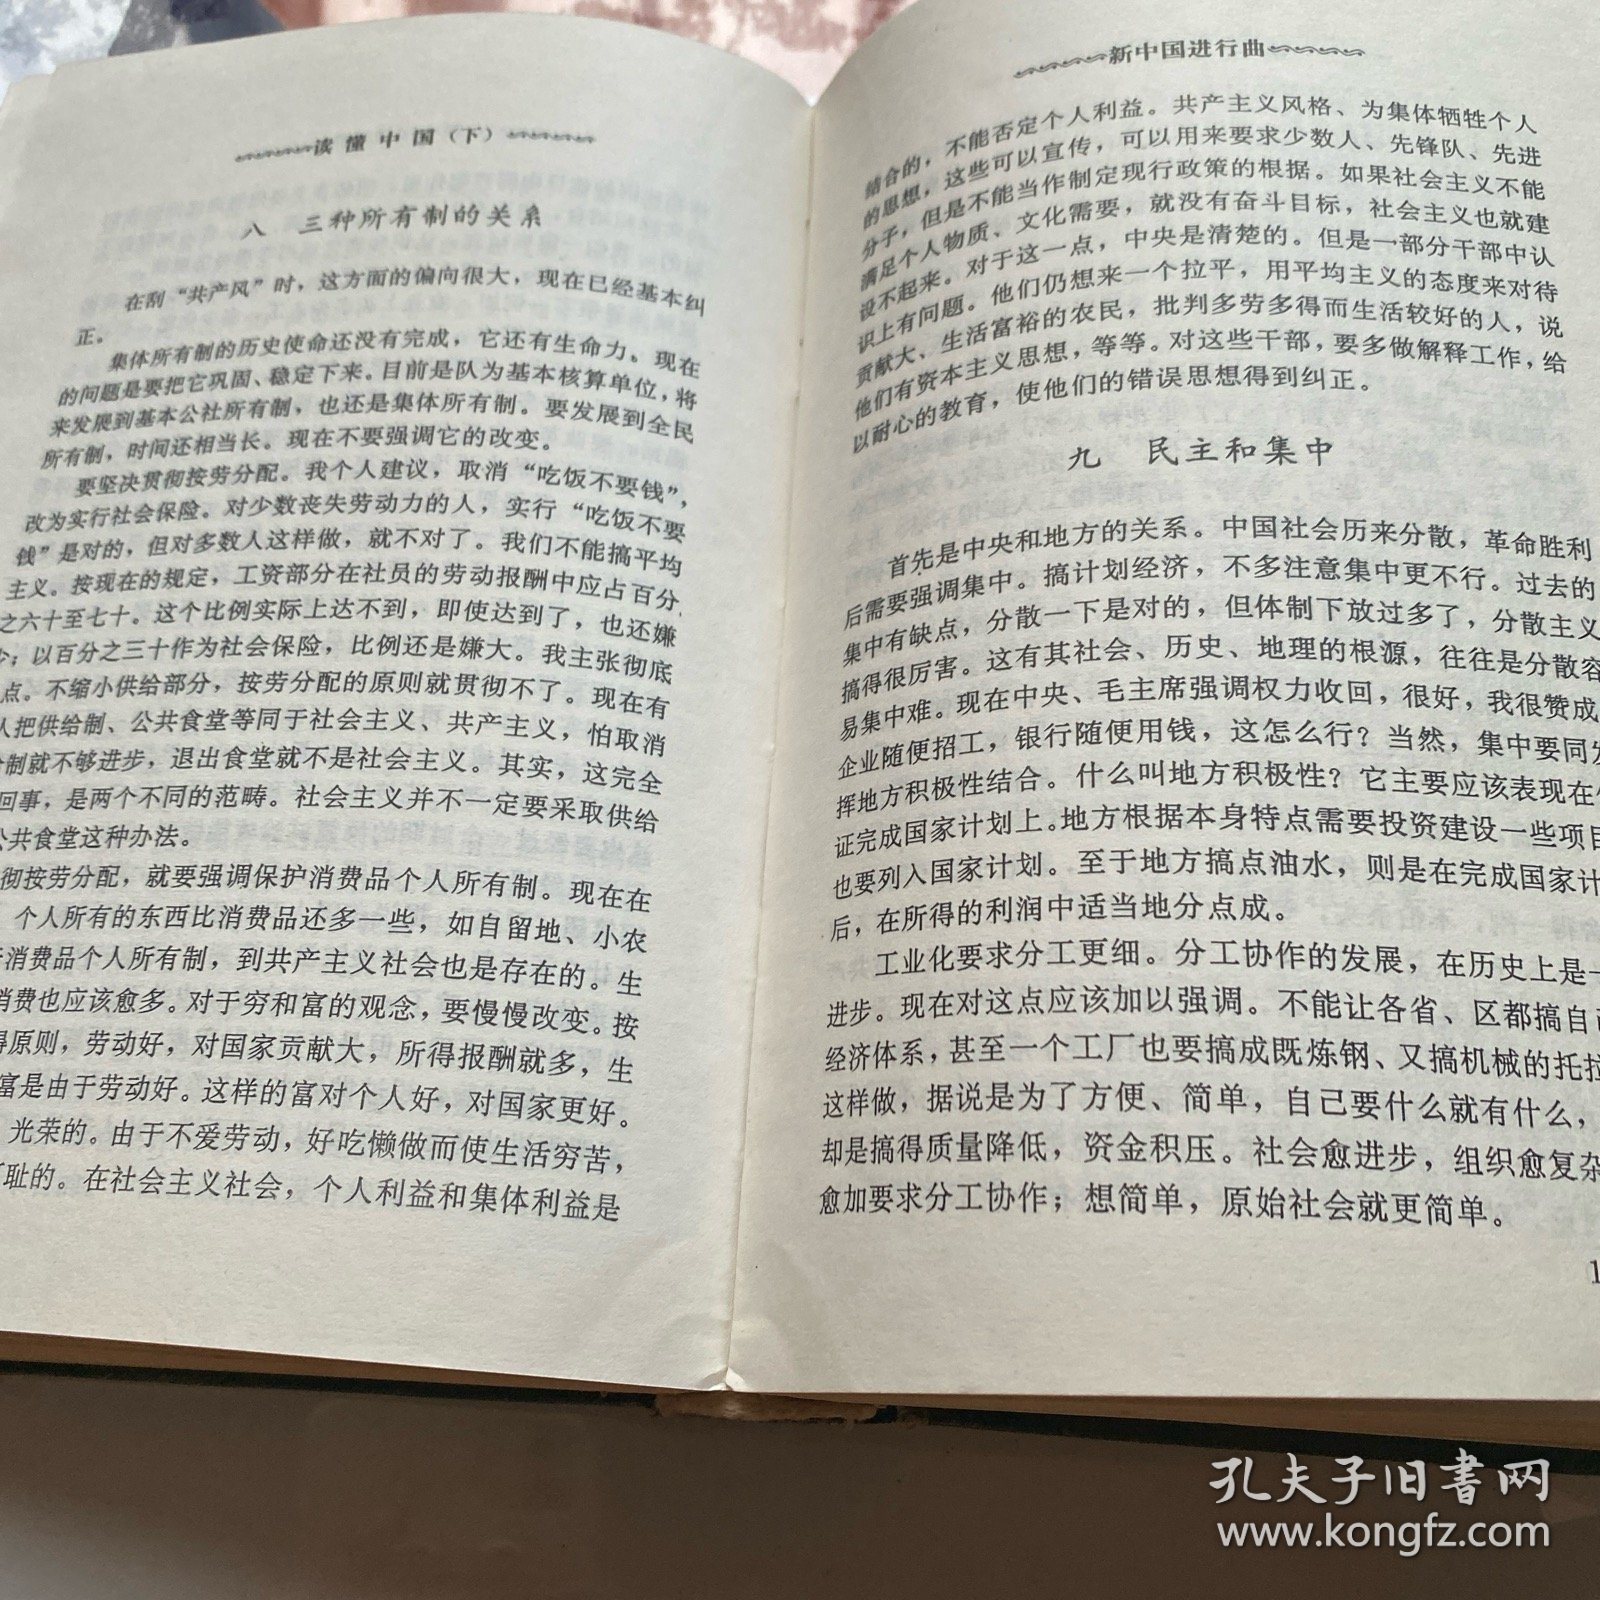 读懂中国（下）
八　三种所有制的关系
在刮“共产风”时，这方面的偏向很大，现在已经基本纠
正。
集体所有制的历史使命还没有完成，它还有生命力。现在
的问题是要把它巩固、稳定下来。目前是队为基本核算单位，将
来发展到基本公社所有制，也还是集体所有制。要发展到全民
所有制，时间还相当长。现在不要强调它的改变。
要坚决贯彻按劳分配。我个人建议，取消“吃饭不要钱”，
改为实行社会保险。对少数丧失劳动力的人，实行“吃饭不要
钱”是对的，但对多数人这样做，就不对了。我们不能搞平均
主义。按现在的规定，工资部分在社员的劳动报酬中应占百分
之六十至七十。这个比例实际上达不到，即使达到了，也还嫌
少；以百分之三十作为社会保险，比例还是嫌大。我主张彻底
点。不缩小供给部分，按劳分配的原则就贯彻不了。现在有
人把供给制、公共食堂等同于社会主义、共产主义，怕取消
制就不够进步，退出食堂就不是社会主义。其实，这完全
回事，是两个不同的范畴。社会主义并不一定要采取供给
公共食堂这种办法。
彻按劳分配，就要强调保护消费品个人所有制。现在在
个人所有的东西比消费品还多一些，如自留地、小农
消费品个人所有制，到共产主义社会也是存在的。生
消费也应该愈多。对于穷和富的观念，要慢慢改变。按
得原则，劳动好，对国家贡献大，所得报酬就多，生
富是由于劳动好。这样的富对个人好，对国家更好。
光荣的。由于不爱劳动，好吃懒做而使生活穷苦，
耻的。在社会主义社会，个人利益和集体利益是
新中国进行曲
结合的，不能否定个人利益。共产主义风格、为集体牺牲个人
的思想，这些可以宣传，可以用来要求少数人、先锋队、先进
分子，但是不能当作制定现行政策的根据。如果社会主义不能
满足个人物质、文化需要，就没有奋斗目标，社会主义也就建
设不起来。对于这一点，中央是清楚的。但是一部分干部中认
识上有问题。他们仍想来一个拉平，用平均主义的态度来对待
贡献大、生活富裕的农民，批判多劳多得而生活较好的人，说
他们有资本主义思想，等等。对这些干部，要多做解释工作，给
以耐心的教育，使他们的错误思想得到纠正。
九　民主和集中
首先是中央和地方的关系。中国社会历来分散，革命胜利
后需要强调集中。搞计划经济，不多注意集中更不行。过去的
集中有缺点，分散一下是对的，但体制下放过多了，分散主义
搞得很厉害。这有其社会、历史、地理的根源，往往是分散容
易集中难。现在中央、毛主席强调权力收回，很好，我很赞成
企业随便招工，银行随便用钱，这怎么行？当然，集中要同发
挥地方积极性结合。什么叫地方积极性？它主要应该表现在
证完成国家计划上。地方根据本身特点需要投资建设一些项目
也要列入国家计划。至于地方搞点油水，则是在完成国家计
后，在所得的利润中适当地分点成。
工业化要求分工更细。分工协作的发展，在历史上是一
进步。现在对这点应该加以强调。不能让各省、区都搞自己
经济体系，甚至一个工厂也要搞成既炼钢、又搞机械的托拉
这样做，据说是为了方便、简单，自己要什么就有什么，
却是搞得质量降低，资金积压。社会愈进步，组织愈复杂
愈加要求分工协作；想简单，原始社会就更简单。
孔夫子旧书网
www.kongfz.com